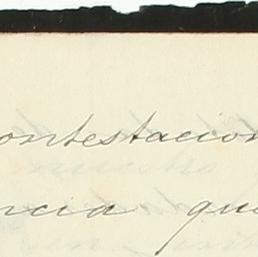 ontestacion
ncia que